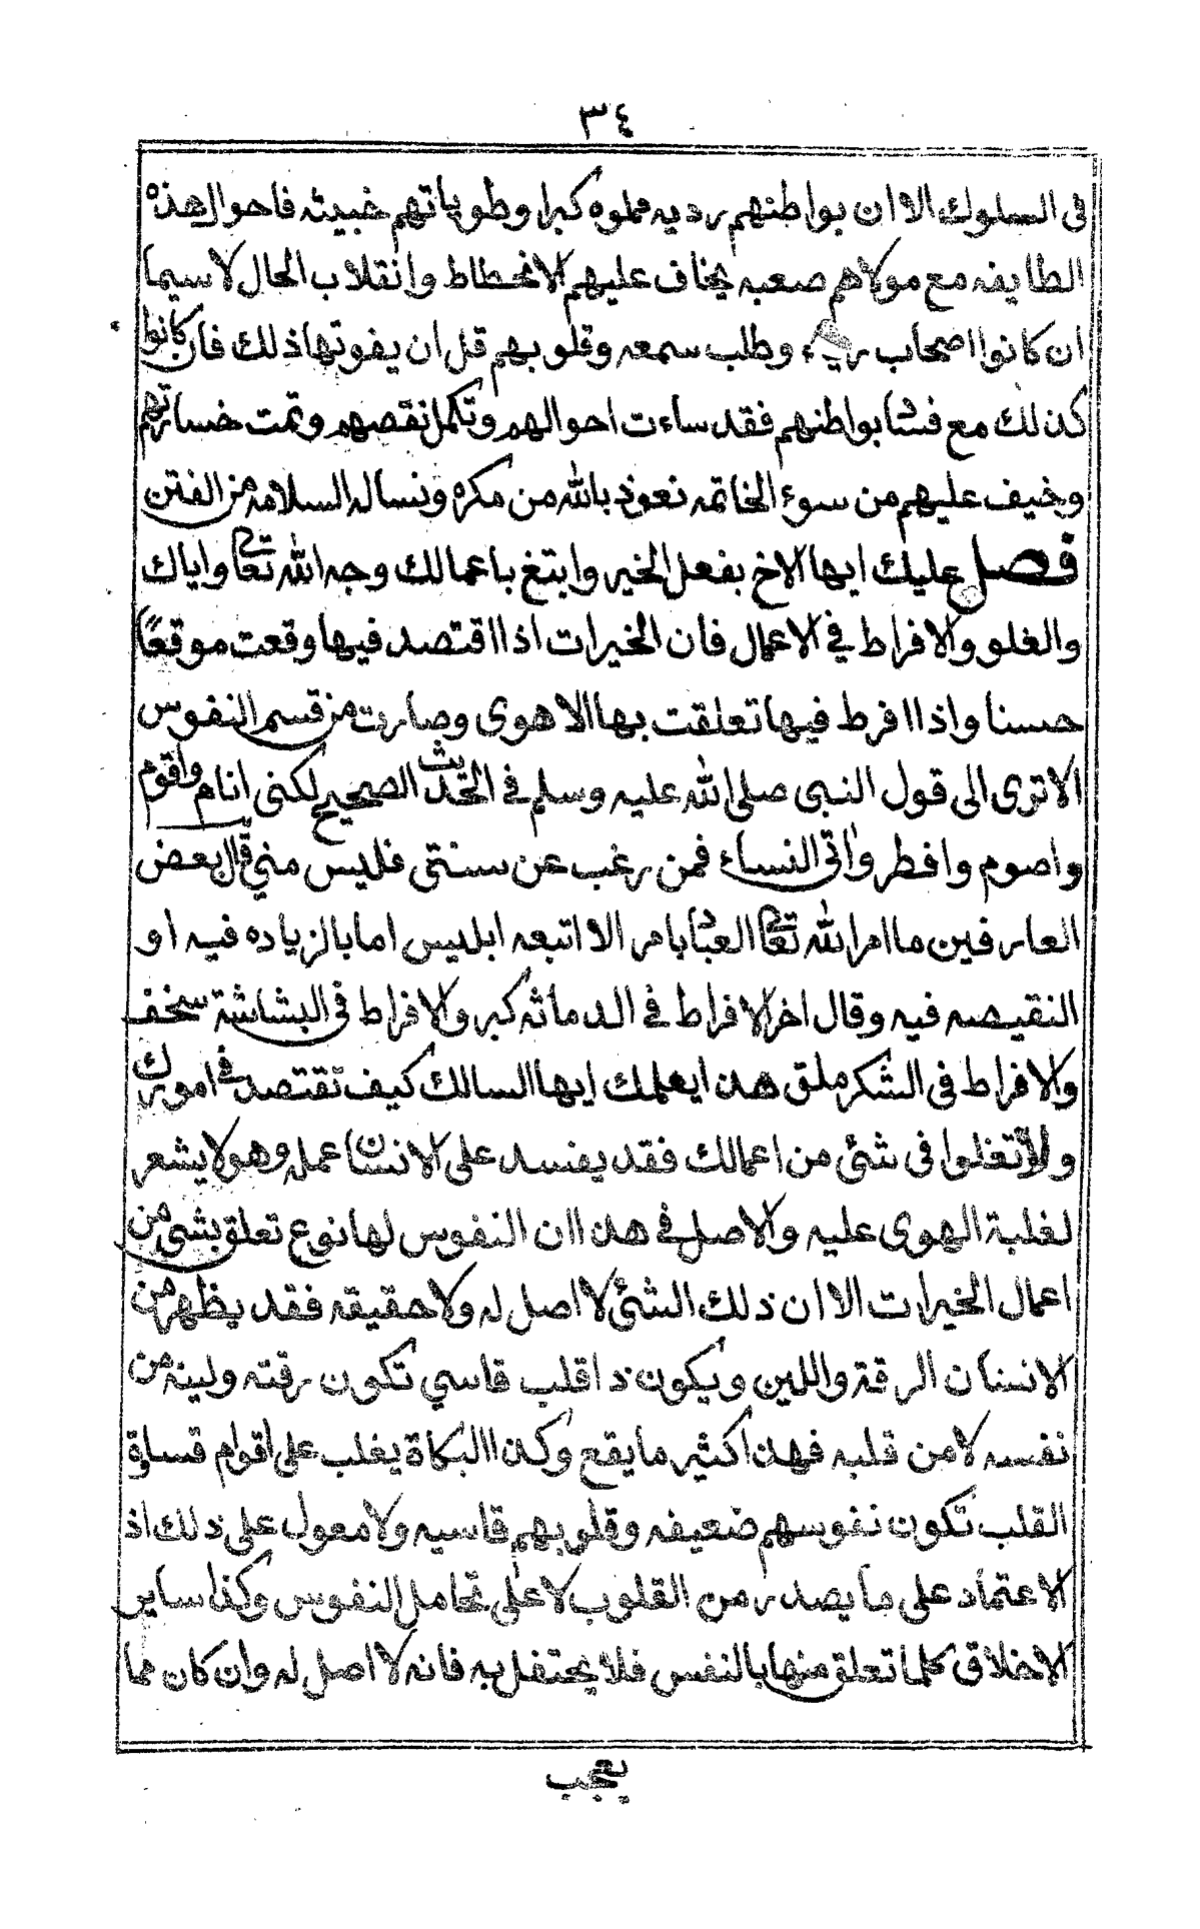 ٣٤
فى السلوك الا ان بواطنهم رديه مملوه كبرا وطوياتهم خبيثه فاحوال هذه
الطايفه مع مولاهم صعبه يخاف عليهم الانحطاط وانقلاب الحال لاسيما
ان كانوا اصحاب رياء وطلب سمعه وقلوبهم قل ان يفوتها ذلك فان كانوا
كذلك مع فساد بواطنهم فقد ساءت احوالهم وتكمل نقصهم وتمت خسارتهم
وخيف عليهم من سوء الخاتمه نعوذ بالله من مكره ونساله السلامه من الفتن
فصل عليك ايها الاخ بفعل الخير وابتغ باعمالك وجه الله تعالى واياك
والغلو والافراط في الاعمال فان الخيرات اذا اقتصد فيها وقعت موقعًا
حسنا واذا افرط فيها تعلقت بها الاهوى وصارت من قسم النفوس
الاترى الى قول النبى صلى الله عليه وسلم في الحديث الصحيح لكنى انام واقوم
واصوم وافطر واتى النساء فمن رغب عن سنتى فليس مني قال بعض
العارفين ما امر الله تعالى العباد بامر الا اتبعه ابليس اما بالزياده فيه او
النقيصه فيه وقال اخر الافراط في الدماثه كبر والافراط فى البشاشة سخف
والافراط فى الشكر ملق هذا يعلمك ايها السالك كيف تقتصد في امورك
ولا تغلوا فى شئ من اعمالك فقد يفسد على الانسان عمله وهو لا يشعر
لغلبة الهوى عليه والاصل في هذا ان النفوس لها نوع تعلق بشى من
اعمال الخيرات الا ان ذلك الشئ لا اصل له ولا حقيقه فقد يظهر من
الانسان الرقة واللين ويكون ذا قلب قاسي تكون رقته ولينه من
نفسه لا من قلبه فهذا كثير ما يقع وكذا البكاة يغلب على اقوام قساة
القلب تكون نفوسهم ضعيفه وقلوبهم قاسيه ولا معول على ذلك اذ
الاعتماد على ما يصدر من القلوب لا على تحامل النفوس وكذا ساير
الاخلاق كلما تعلق منها بالنفس فلا يحتفل به فانه لا اصل له وان كان مما
يعجب